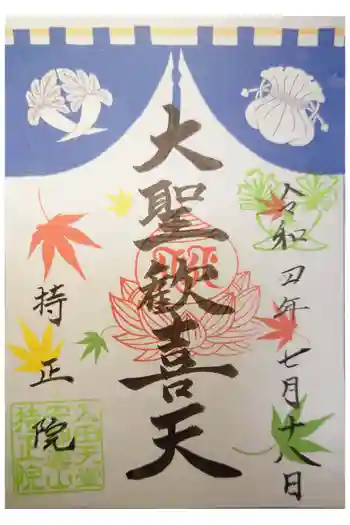 令和四年七月十八日
大聖歓喜天
持正院